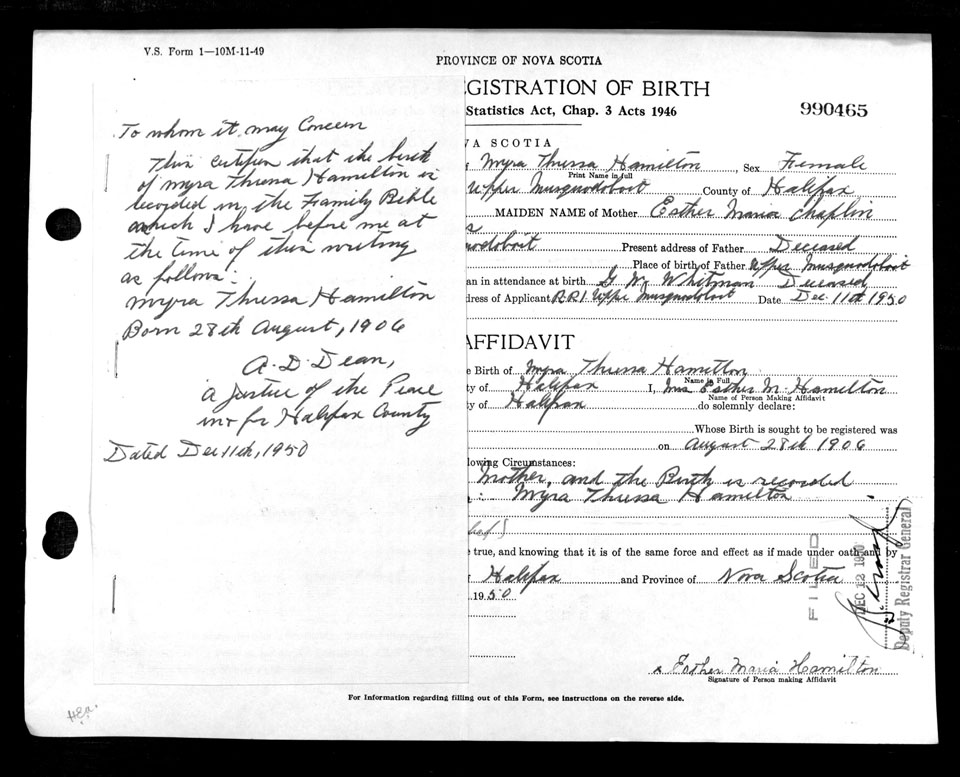 V.S. Form 1—10M-11-49
PROVINCE OF NOVA SCOTIA
GISTRATION OF BIRTH
Statistics Act, Chap. 3 Acts 1946
990465
To whom it may Concern
This certifies that the birth
of Myra Thressa Hamilton is
recorded in the Family Bible
which I have before me at
the time of this writing
as follows:
Myra Thressa Hamilton
Born 28th August, 1906
A. D. Dean,
a Justice of the Peace
in & for Halifax County
Dated Dec 11th, 1950
VA SCOTIA
Myra Thressa Hamilton, Sex Female
Print Name in full
Upper Musquodoboit County of Halifax
MAIDEN NAME of Mother Esther Maria Chaplin
s
uodoboit Present address of Father Deceased
Place of birth of Father Upper Musquodoboit
an in attendance at birth G. W. Whitman Deceased
dress of Applicant R.R.1 Upper Musquodoboit Date Dec. 11th 1950
AFFIDAVIT
e Birth of Myra Thressa Hamilton
Name in Full
ty of Halifax I, Mrs Esther M. Hamilton
Name of Person Making Affidavit
ty of Halifax do solemnly declare:
Whose Birth is sought to be registered was
on August 28th 1906
lowing Circumstances:
Mother, and the Birth is recorded
: Myra Thressa Hamilton
e true, and knowing that it is of the same force and effect as if made under oath and by
Halifax and Province of Nova Scotia
1950
FILED
DEC 12 1950
Deputy Registrar General
x Esther Maria Hamilton
Signature of Person making Affidavit
For Information regarding filling out of this Form, see instructions on the reverse side.